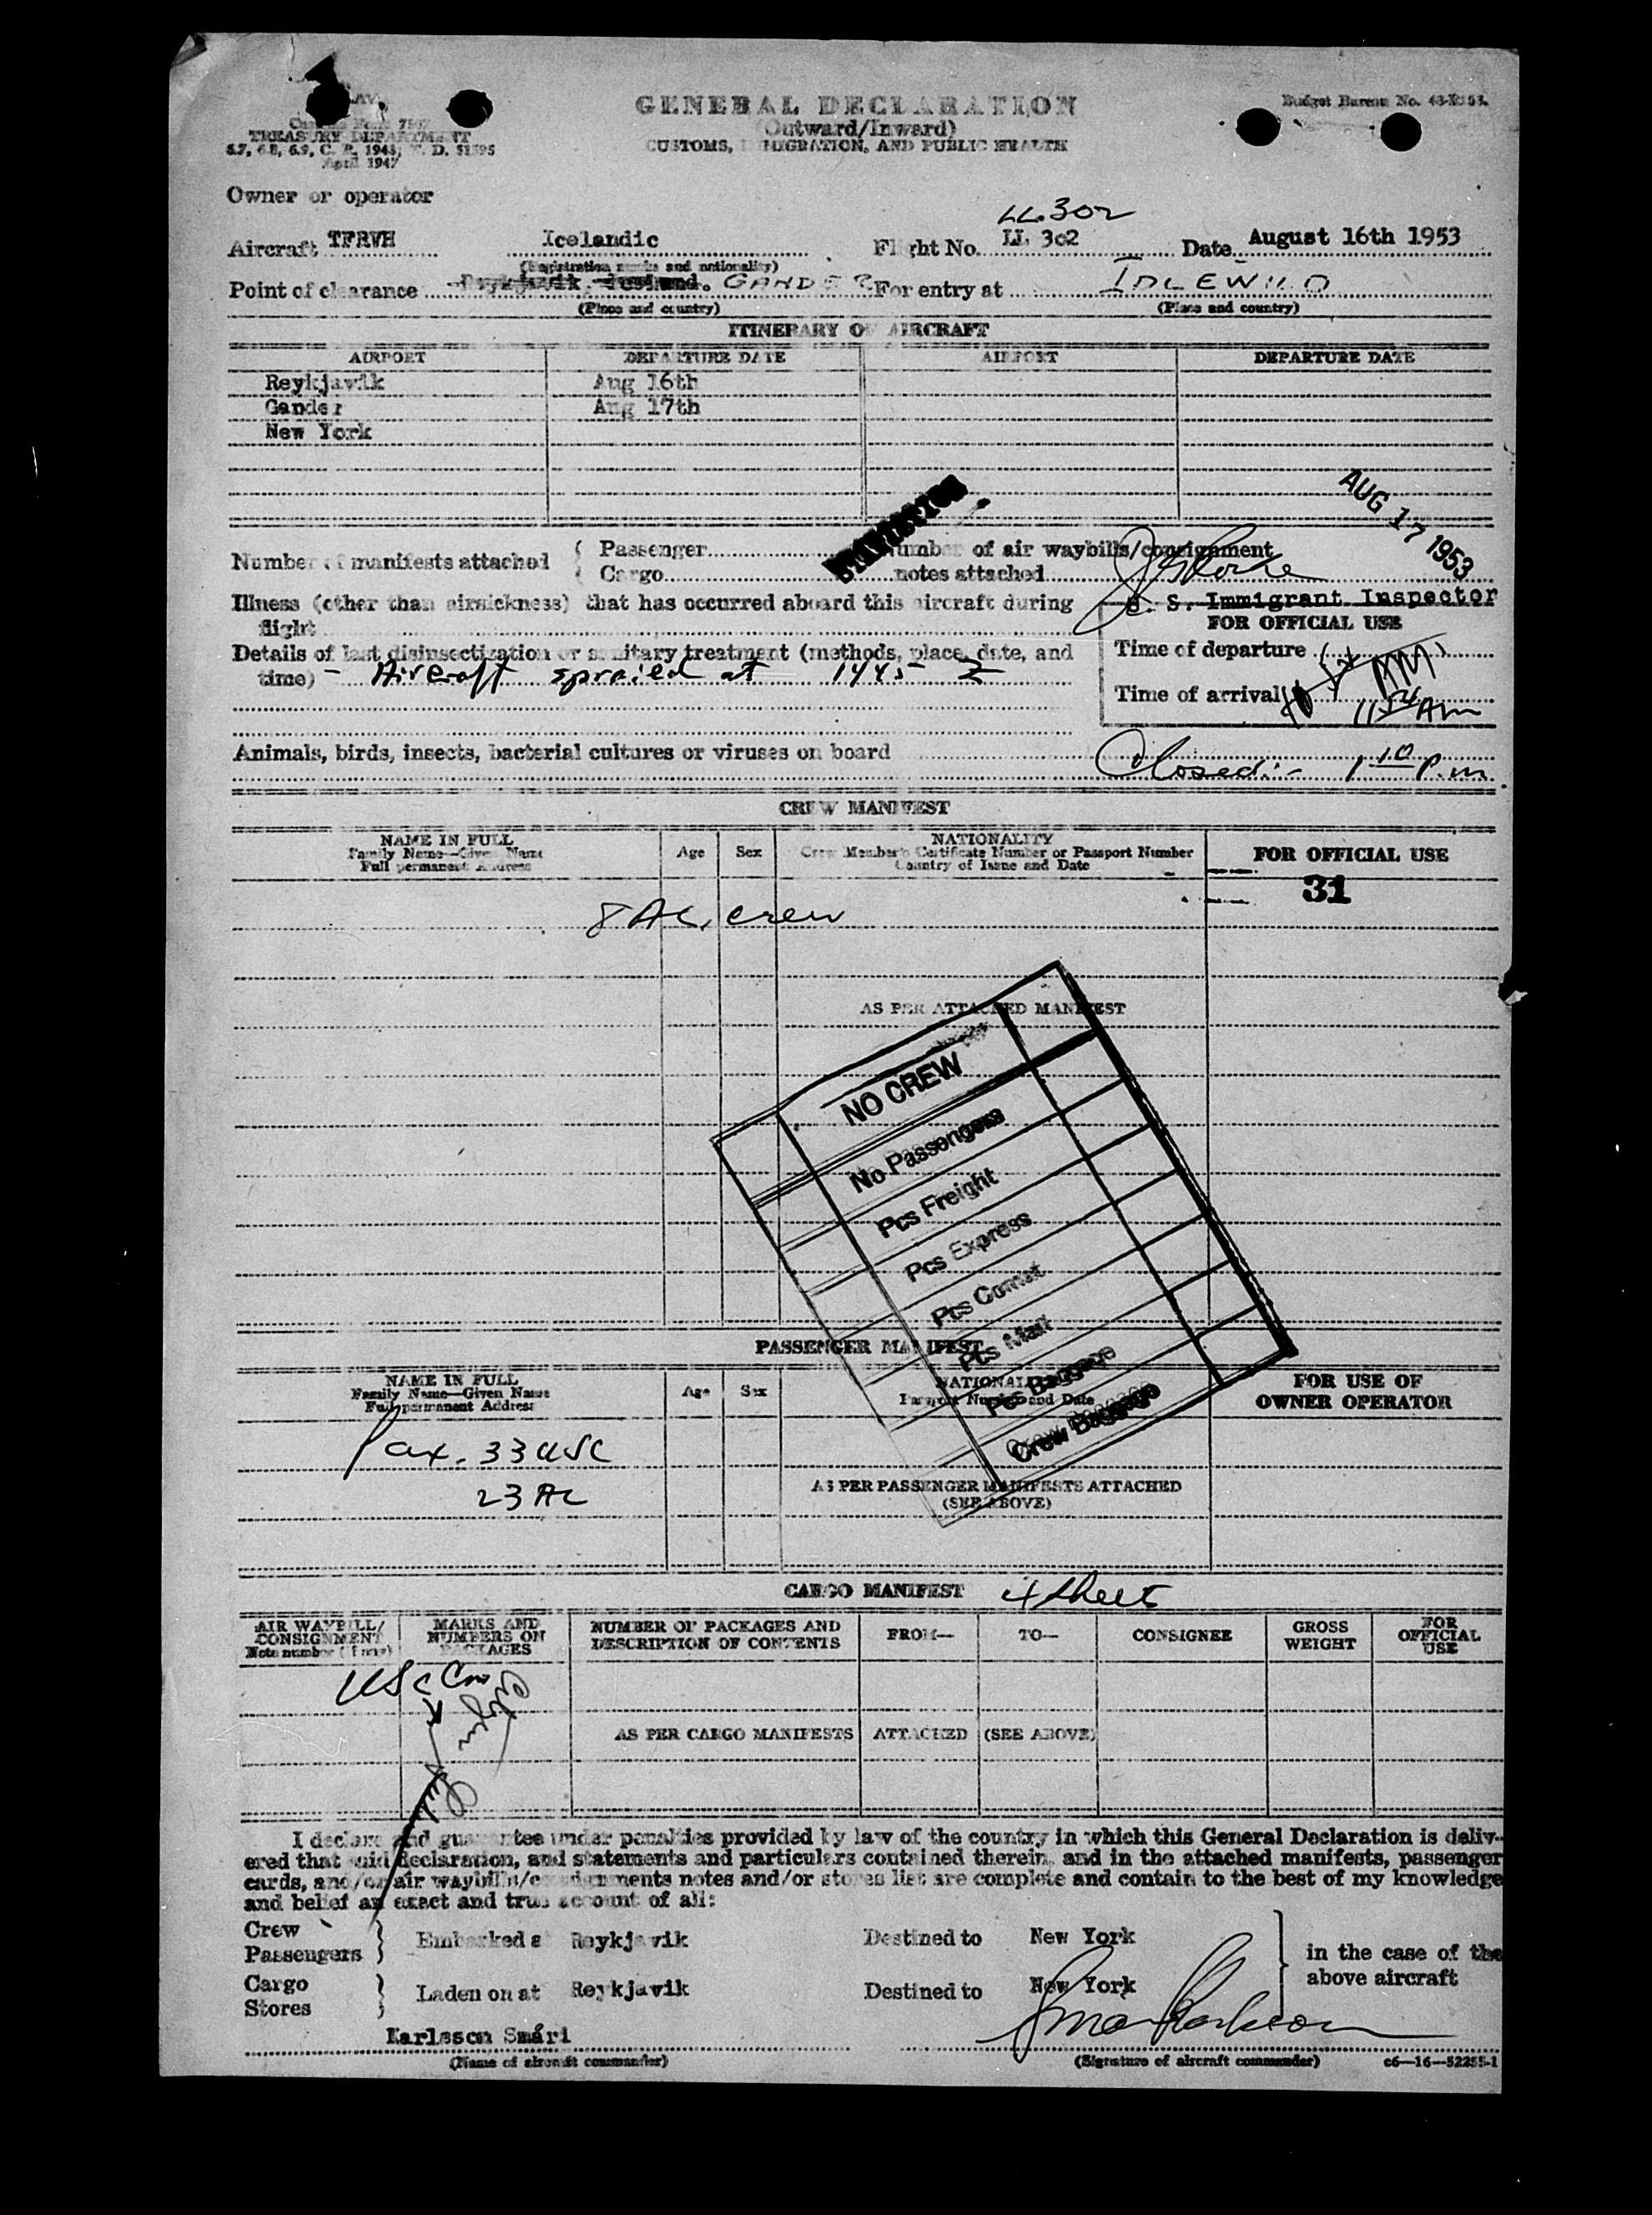 GENERAL DECLARATION
(Outward/Inward)
CUSTOMS, IMMIGRATION, AND PUBLIC HEALTH
Budget Bureau No.
TREASURY DEPARTMENT
April 1947
Owner or operator
LL.302
Aircraft TFRVH Icelandic Flight No. LL 302 Date August 16th 1953
(Registration marks and nationality)
Point of clearance Reykjavik, GANDER For entry at IDLEWILD
(Place and country) (Place and country)
ITINERARY OF AIRCRAFT
AIRPORT DEPARTURE DATE AIRPORT DEPARTURE DATE
Reykjavik Aug 16th
Gander Aug 17th
New York
AUG 17 1953
Number of manifests attached { Passenger Number of air waybills/consignment
Cargo notes attached
U. S. Immigrant Inspector
Illness (other than airsickness) that has occurred aboard this aircraft during
flight
FOR OFFICIAL USE
Details of last disinsectization or sanitary treatment (methods, place, date, and
time) - Aircraft spraied at 1445 Z
Time of departure
Time of arrival AM
Animals, birds, insects, bacterial cultures or viruses on board
Closed:- 1 10 P.m.
CREW MANIFEST
NAME IN FULL Age Sex NATIONALITY FOR OFFICIAL USE
Family Name—Given Name Crew Member's Certificate Number or Passport Number
Full permanent Address Country of Issue and Date
31
8 AL. crew
AS PER ATTACHED MANIFEST
NO CREW
No Passengers
Pcs Freight
Pcs Express
Pcs Comat
Pcs Mail
Pcs Baggage
Crew Baggage
PASSENGER MANIFEST
NAME IN FULL Age Sex NATIONALITY FOR USE OF
Family Name—Given Name Passport Number and Date OWNER OPERATOR
Full permanent Address
Pax. 33 USC
23 AL
AS PER PASSENGER MANIFESTS ATTACHED
(SEE ABOVE)
CARGO MANIFEST 4 sheets
AIR WAYBILL/ MARKS AND NUMBER OF PACKAGES AND FROM— TO— CONSIGNEE GROSS FOR
CONSIGNMENT NUMBERS ON DESCRIPTION OF CONTENTS WEIGHT OFFICIAL
Note number (if any) PACKAGES USE
USC
AS PER CARGO MANIFESTS ATTACHED (SEE ABOVE)
I declare and guarantee under penalties provided by law of the country in which this General Declaration is deliv-
ered that said declaration, and statements and particulars contained therein, and in the attached manifests, passenger
cards, and/or air waybills/consignments notes and/or stores list are complete and contain to the best of my knowledge
and belief an exact and true account of all:
Crew
Passengers } Embarked at Reykjavik Destined to New York
in the case of the
above aircraft
Cargo
Stores } Laden on at Reykjavik Destined to New York
Karlsson Smári
(Name of aircraft commander) (Signature of aircraft commander) c6—16—52255-1